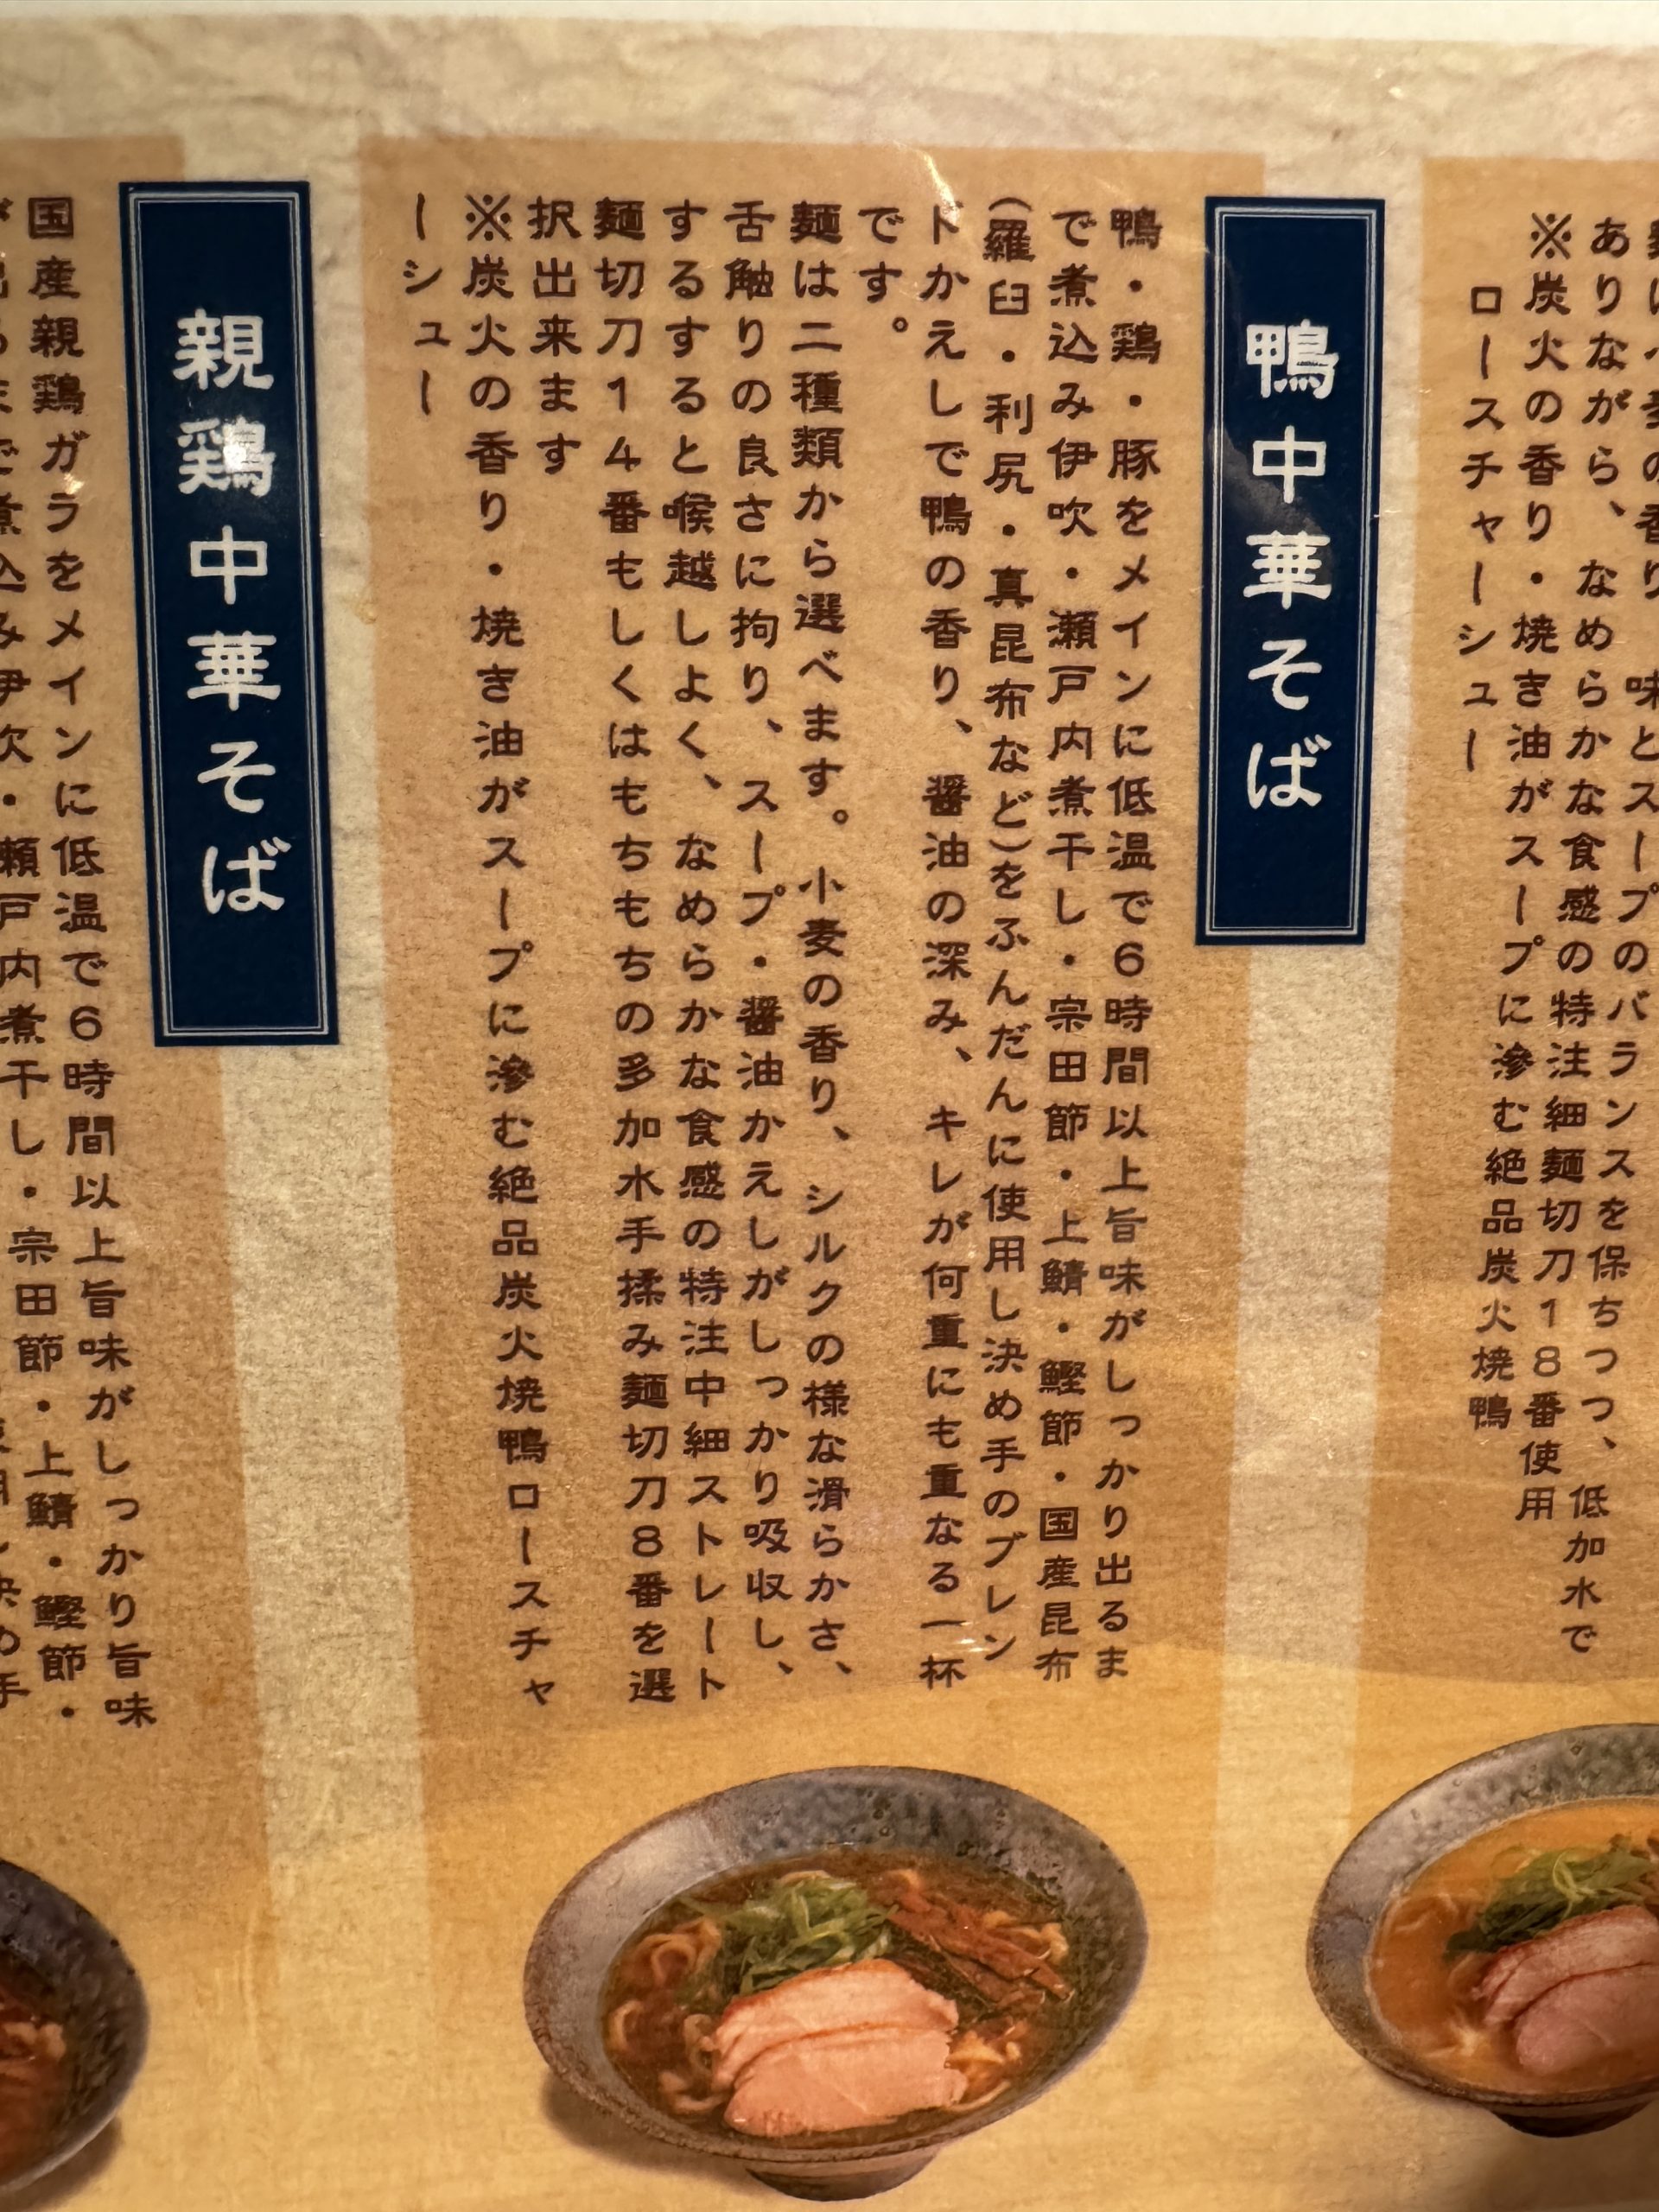 ありながら、なめらかな食感の特注細麺切刀18番使用
※炭火の香り・焼き油がスープに滲む絶品炭火焼鴨
ロースチャーシュー
鴨中華そば
鴨・鶏・豚をメインに低温で6時間以上旨味がしっかり出るま
で煮込み伊吹・瀬戸内煮干し・宗田節・上鯖・鰹節・国産昆布
(羅臼・利尻・真昆布など)をふんだんに使用し決め手のブレン
ドかえしで鴨の香り、醤油の深み、キレが何重にも重なる一杯
です。
麺は二種類から選べます。小麦の香り、シルクの様な滑らかさ、
舌触りの良さに拘り、スープ・醤油かえしがしっかり吸収し、
するすると喉越しよく、なめらかな食感の特注中細ストレート
麺切刀14番もしくはもちもちの多加水手揉み麺切刀8番を選
択出来ます
※炭火の香り・焼き油がスープに滲む絶品炭火焼鴨ロースチャ
ーシュー
親鶏中華そば
国産親鶏ガラをメインに低温で6時間以上旨味がしっかり旨味